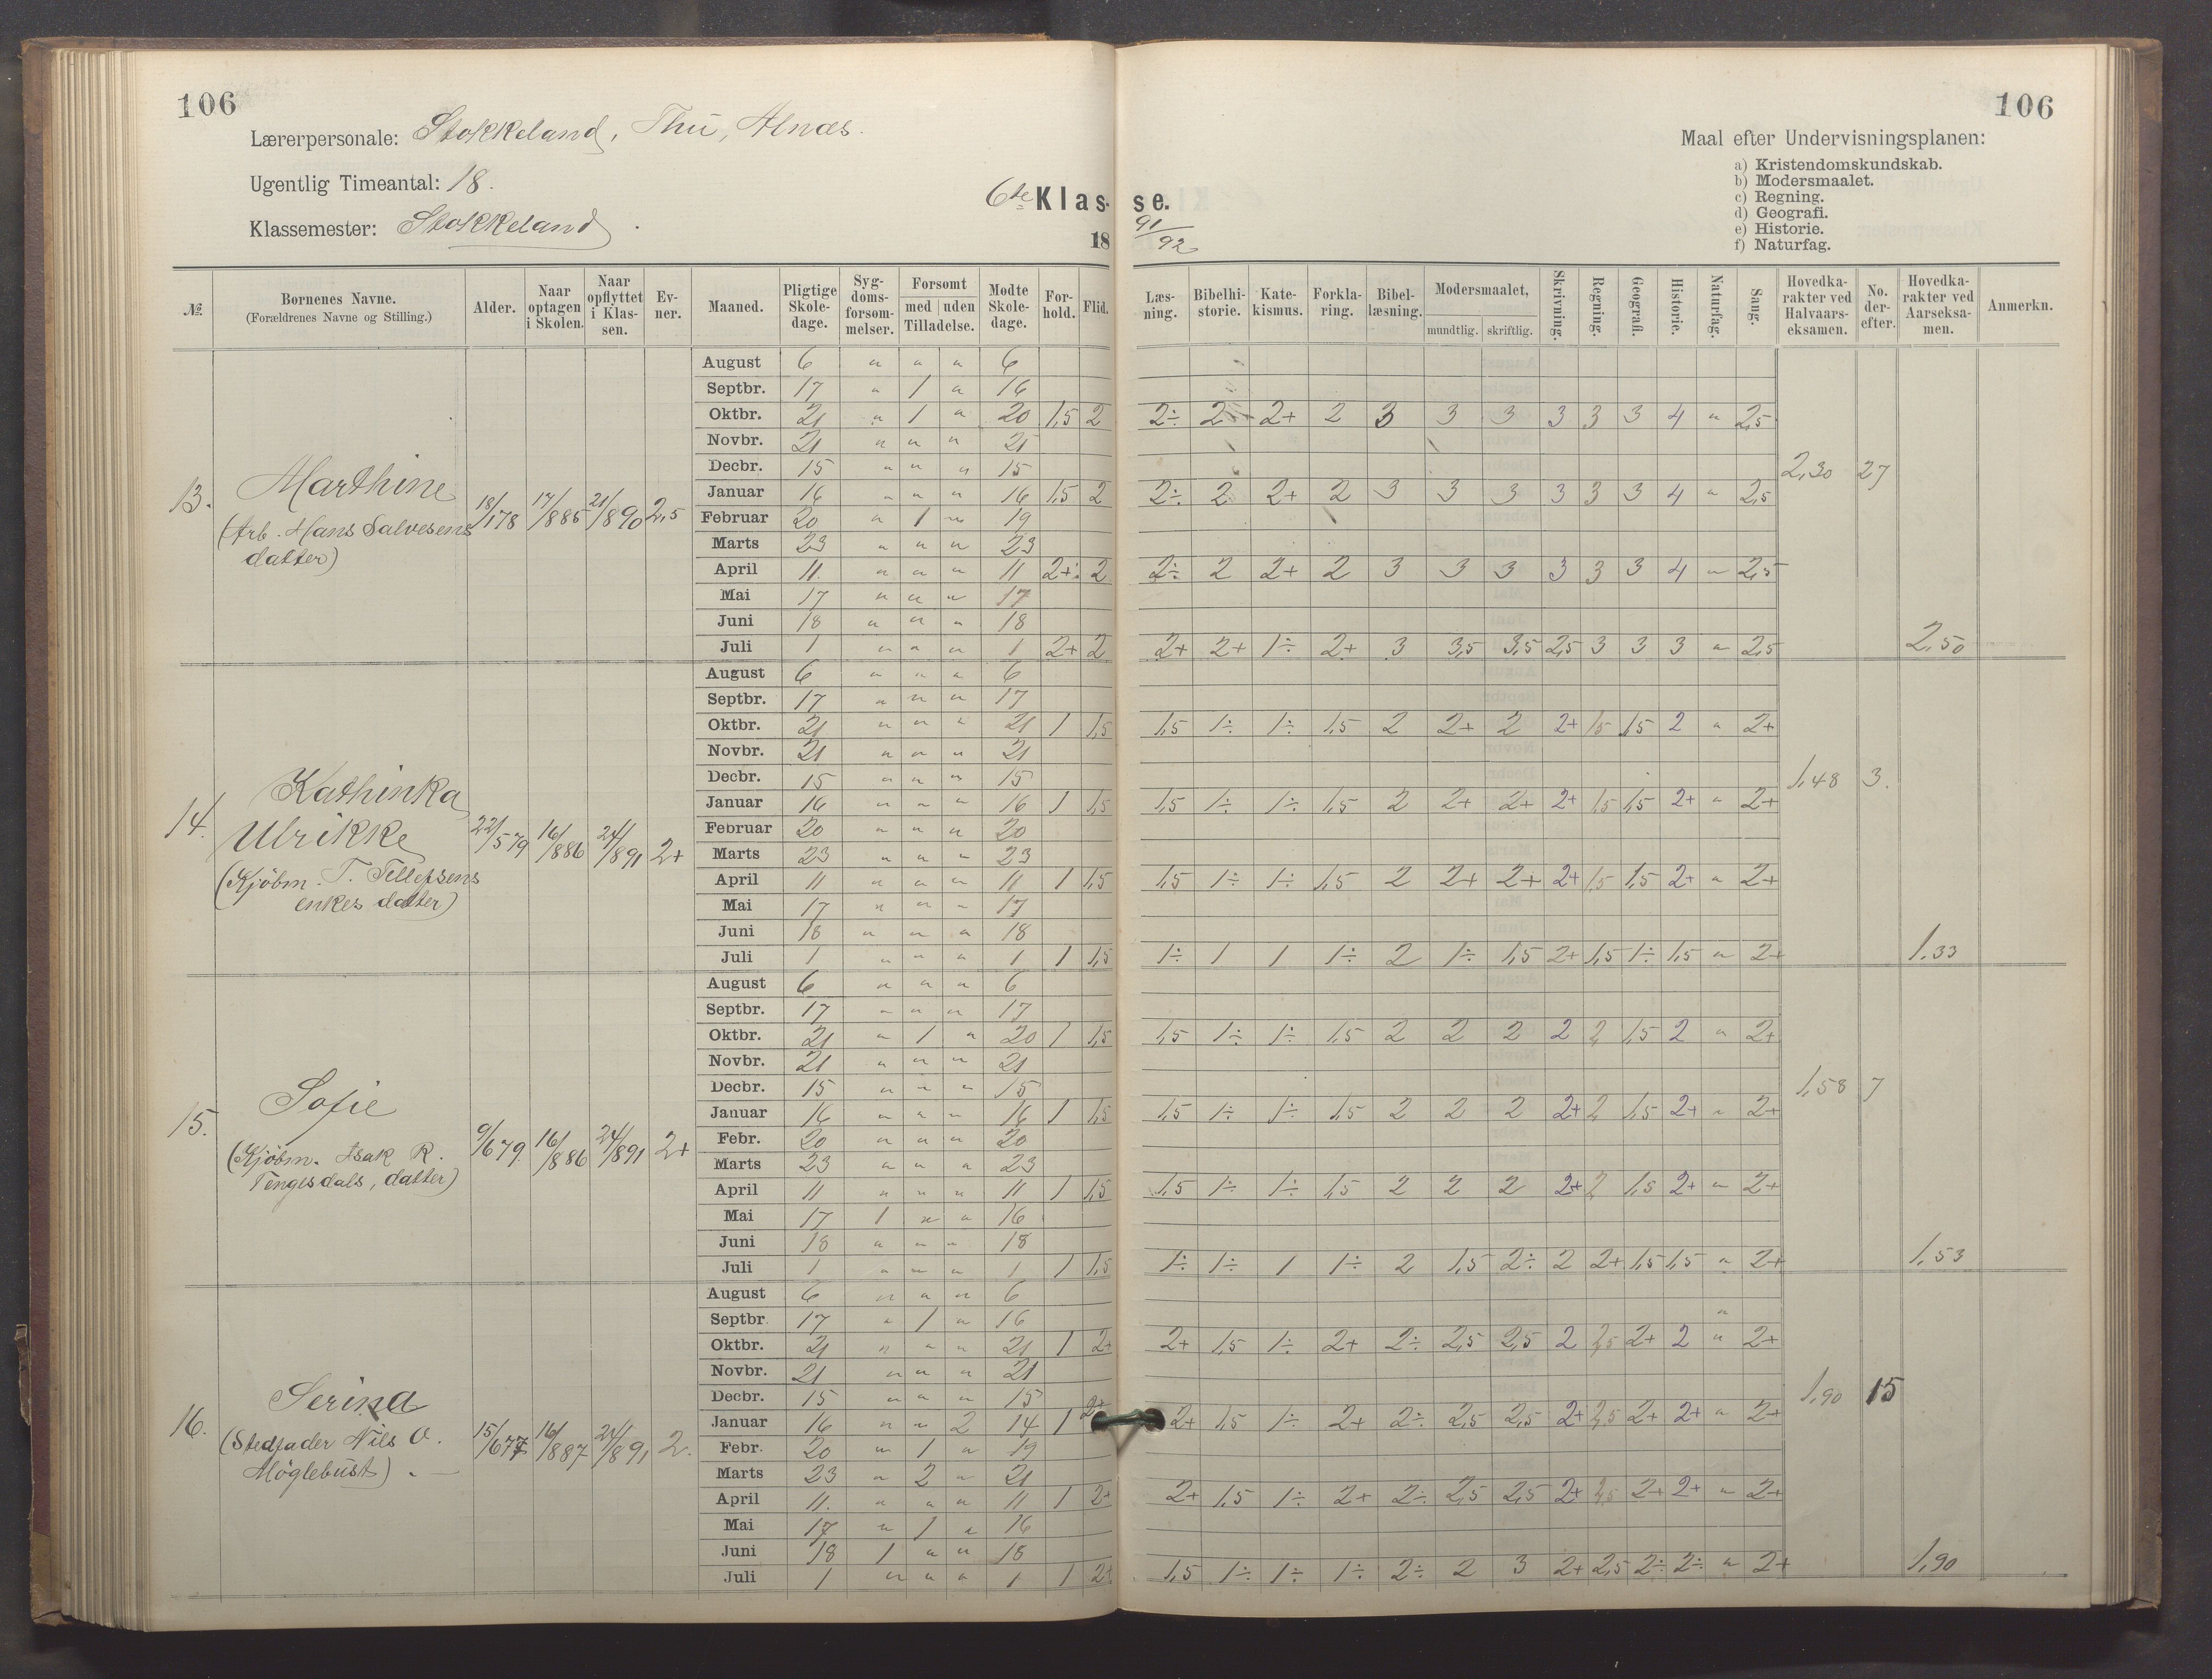 106
106
Lærerpersonale: Stokkeland, Thu, Alnæs.
Ugentlig Timeantal: 18.
Klassemester: Stokkeland
6te Klasse.
18 91/92
Maal efter Undervisningsplanen:
a) Kristendomskundskab.
b) Modersmaalet.
c) Regning.
d) Geografi.
e) Historie.
f) Naturfag.
№. Børnenes Navne. (Forældrenes Navne og Stilling.) Alder. Naar optagen i Skolen. Naar opflyttet i Klassen. Evner. Maaned. Pligtige Skoledage. Sygdomsforsømmelser. Forsømt med uden Tilladelse. Mødte Skoledage. Forhold. Flid. Læsning. Bibelhistorie. Katekismus. Forklaring. Bibellæsning. Modersmaalet, mundtlig. skriftlig. Skrivning. Regning. Geografi. Historie. Naturfag. Sang. Hovedkarakter ved Halvaarseksamen. No. derefter. Hovedkarakter ved Aarseksamen. Anmerkn.
13. Marthine
(Arb. Hans Salvesens
datter)
18/1 78 17/8 85 21/8 90 2,5
August 6 " " " 6
Septbr. 17 " 1 " 16
Oktbr. 21 " 1 " 20 1,5 2 2÷ 2 2+ 2 3 3 3 3 3 3 4 " 2,5
Novbr. 21 " " " 21
Decbr. 15 " " " 15 2,30 27
Januar 16 " " " 16 1,5 2 2÷ 2 2+ 2 3 3 3 3 3 3 4 " 2,5
Februar 20 " 1 " 19
Marts 23 " " " 23
April 11. " " " 11 2+ 2 2÷ 2 2+ 2 3 3 3 3 3 3 4 " 2,5
Mai 17 " " " 17
Juni 18 " " " 18
Juli 1 " " " 1 2+ 2 2+ 2+ 1÷ 2+ 3 3,5 3,5 2,5 3 3 3 " 2,5 2,50
14. Kathinka
Ulrikke
(Kjøbm. T. Tellefsens
enkes datter)
22/5 79 16/8 86 24/8 91 2+
August 6 " " " 6
Septbr. 17 " " " 17
Oktbr. 21 " " " 21 1 1,5 1,5 1÷ 1÷ 1,5 2 2+ 2 2+ 1,5 1,5 2 " 2+
Novbr. 21 " " " 21
Decbr. 15 " " " 15 1,48 3.
Januar 16 " " " 16 1 1,5 1,5 1÷ 1÷ 1,5 2 2+ 2+ 2+ 1,5 1,5 2+ " 2+
Februar 20 " " " 20
Marts 23 " " " 23
April 11 " " " 11 1 1,5 1,5 1÷ 1÷ 1,5 2 2+ 2+ 2+ 1,5 1,5 2+ " 2+
Mai 17 " " " 17
Juni 18 " " " 18
Juli 1 " " " 1 1 1,5 1÷ 1 1 1÷ 2 1÷ 1,5 2+ 1,5 1÷ 1,5 " 2+ 1,33
15. Sofie
(Kjøbm. Isak R.
Tengesdals, datter)
9/6 79 16/8 86 24/8 91 2+
August 6 " " " 6
Septbr. 17 " " " 17
Oktbr. 21 " 1 " 20 1 1,5 1,5 1÷ 1÷ 1,5 2 2 2 2 2 1,5 2 " 2+
Novbr. 21 " " " 21
Decbr. 15 " " " 15 1,58 7
Januar 16 " " " 16 1 1,5 1,5 1÷ 1÷ 1,5 2 2 2 2+ 2 1,5 2+ " 2+
Febr. 20 " " " 20
Marts 23 " " " 23
April 11 " " " 11 1 1,5 1,5 1÷ 1÷ 1,5 2 2 2 2+ 2 1,5 2+ " 2+
Mai 17 1 " " 16
Juni 18 " " " 18
Juli 1 " " " 1 1 1,5 1÷ 1÷ 1 1÷ 2 1,5 2÷ 2 2+ 1,5 1,5 " 2+ 1,53
16. Serina
(Stedfader Nils O.
Møglebust)
15/6 77 16/8 87 24/8 91 2.
August 6 " " " 6
Septbr. 17 " 1 " 16 "
Oktbr. 21 " " " 21 1 2+ 2+ 1,5 1÷ 2+ 2÷ 2,5 2,5 2 2,5 2+ 2 " 2+
Novbr. 21 " " " 21
Decbr. 15 " " " 15 1,90 15
Januar 16 " " 2 14 1 2+ 2+ 1,5 1÷ 2+ 2÷ 2,5 2,5 2+ 2,5 2+ 2+ " 2+
Febr. 20 " 1 " 19
Marts 23 " 2 " 21
April 11. " " " 11 1 2+ 2+ 1,5 1÷ 2+ 2÷ 2,5 2,5 2+ 2,5 2+ 2+ " 2+
Mai 17 " 1 " 16
Juni 18 1 " " 18
Juli 1 " " " 1 1 2+ 1,5 1÷ 1÷ 1÷ 2÷ 2 3 2+ 2,5 2÷ 2÷ " 2+ 1,90